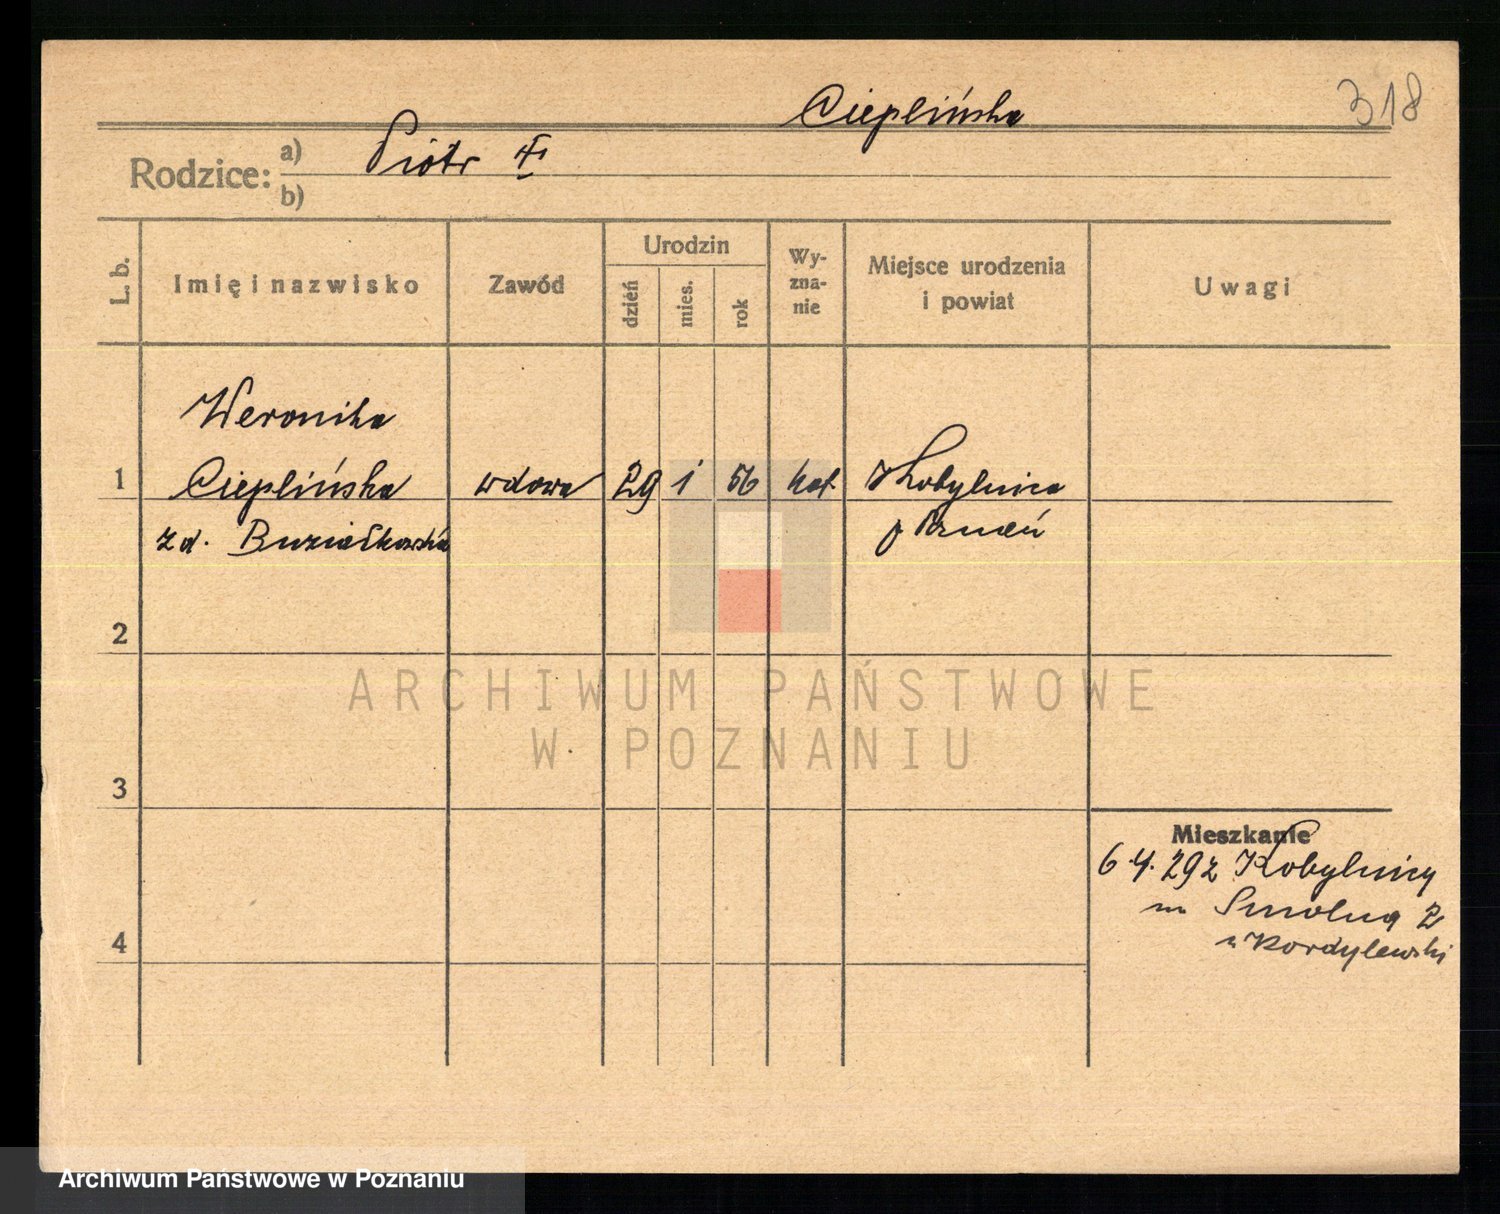 Cieplińska
318
Rodzice: a) Piotr
b)
L. b.
Imię i nazwisko
Zawód
Urodzin
dzień
mies.
rok
Wy-
zna-
nie
Miejsce urodzenia
i powiat
Uwagi
Weronika
1 Cieplińska wdowa 29 1 56 kat. Kobylnica
z d.
2
3
4
Mieszkanie
6.4.29 z Kobylnicy
Smolna 2
Kordylewski
ARCHIWUM PAŃSTWOWE
W POZNANIU
Archiwum Państwowe w Poznaniu